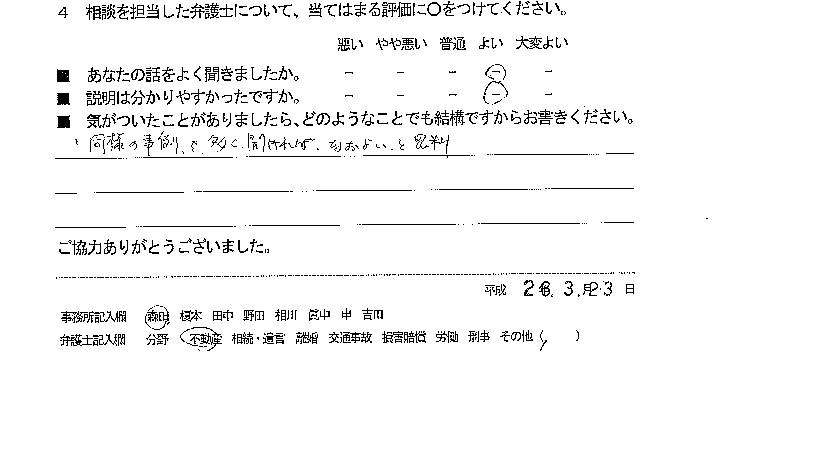 4 相談を担当した弁護士について、当てはまる評価に〇をつけてください。
悪い やや悪い 普通 よい 大変よい
■ あなたの話をよく聞きましたか。 - - - - -
■ 説明は分かりやすかったですか。 - - - - -
■ 気がついたことがありましたら、どのようなことでも結構ですからお書きください。
同様の事例を多く聞ければ、なおよいと思料
ご協力ありがとうございました。
平成 26. 3. 月23 日
事務所記入欄 森田 榎本 田中 野田 相川 眞中 申 吉田
弁護士記入欄 分野 不動産 相続・遺言 離婚 交通事故 損害賠償 労働 刑事 その他( )